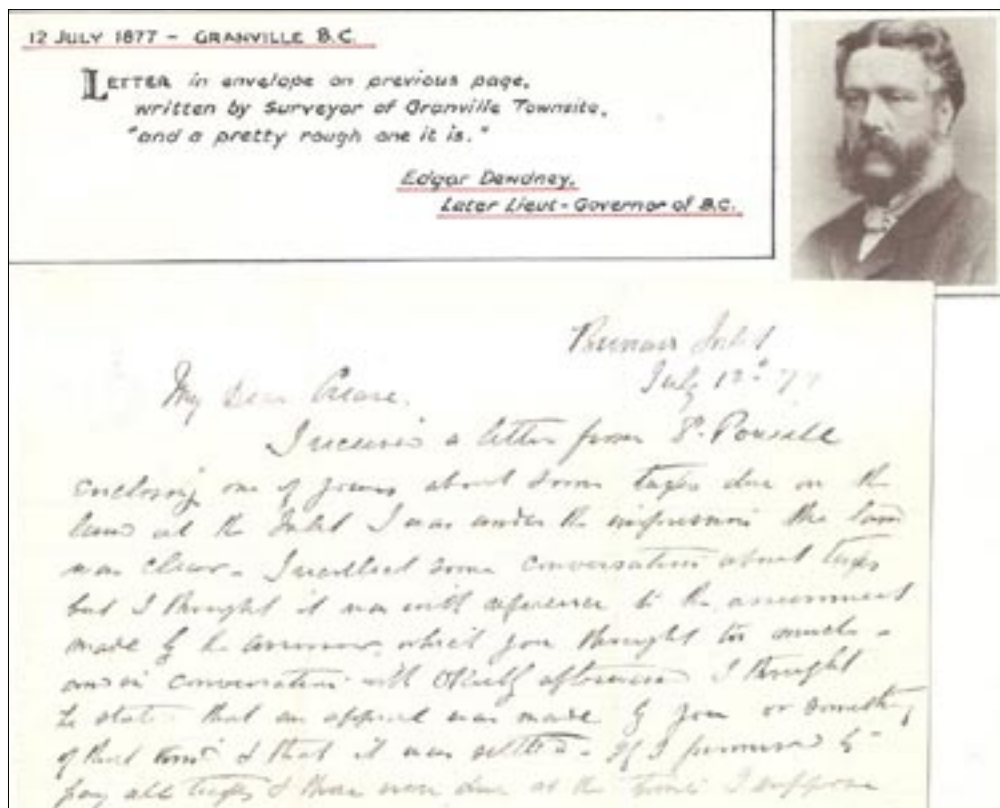 12 JULY 1877 - GRANVILLE B.C.
LETTER in envelope on previous page,
written by Surveyor of Granville Townsite,
"and a pretty rough one it is."
Edgar Dewdney,
Later Lieut-Governor of B.C.
Burrard Inlet
July 12th 77
My Dear Crease.
I received a letter from P.
enclosing one of yours about some taxes due on the
land at the Inlet I was under the impression the land
was clear. I recollect some conversation about taxes
but I thought it was with reference to the assessment
made by the assessor, which you thought too much.
and in conversation with afterwards I thought
he stated that an appeal was made by you or something
of that kind & that it was settled. If I promised to
pay all taxes & there were due at the time I suppose